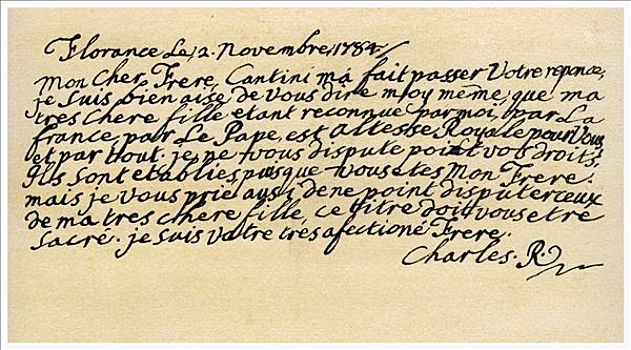 Florance Le, 2. Novembre, 1784/
mon Cher Frere, Cantini ma fait passer Votre reponce,
je suis bien aise de vous dire moy meme que ma
tres chere fille etant reconnue par moi, par La
france, par Le Pape, est Altesse Royale pour Vous
et par tout. je ne vous dispute point vos droits,
Ils sont etablies, puisque vous etes Mon Frere.
mais je vous prie aussi de ne point disputer ceux
de ma tres chere fille, ce titre doit vous etre
sacré. je suis votre tres afectioné Frere.
Charles. R.